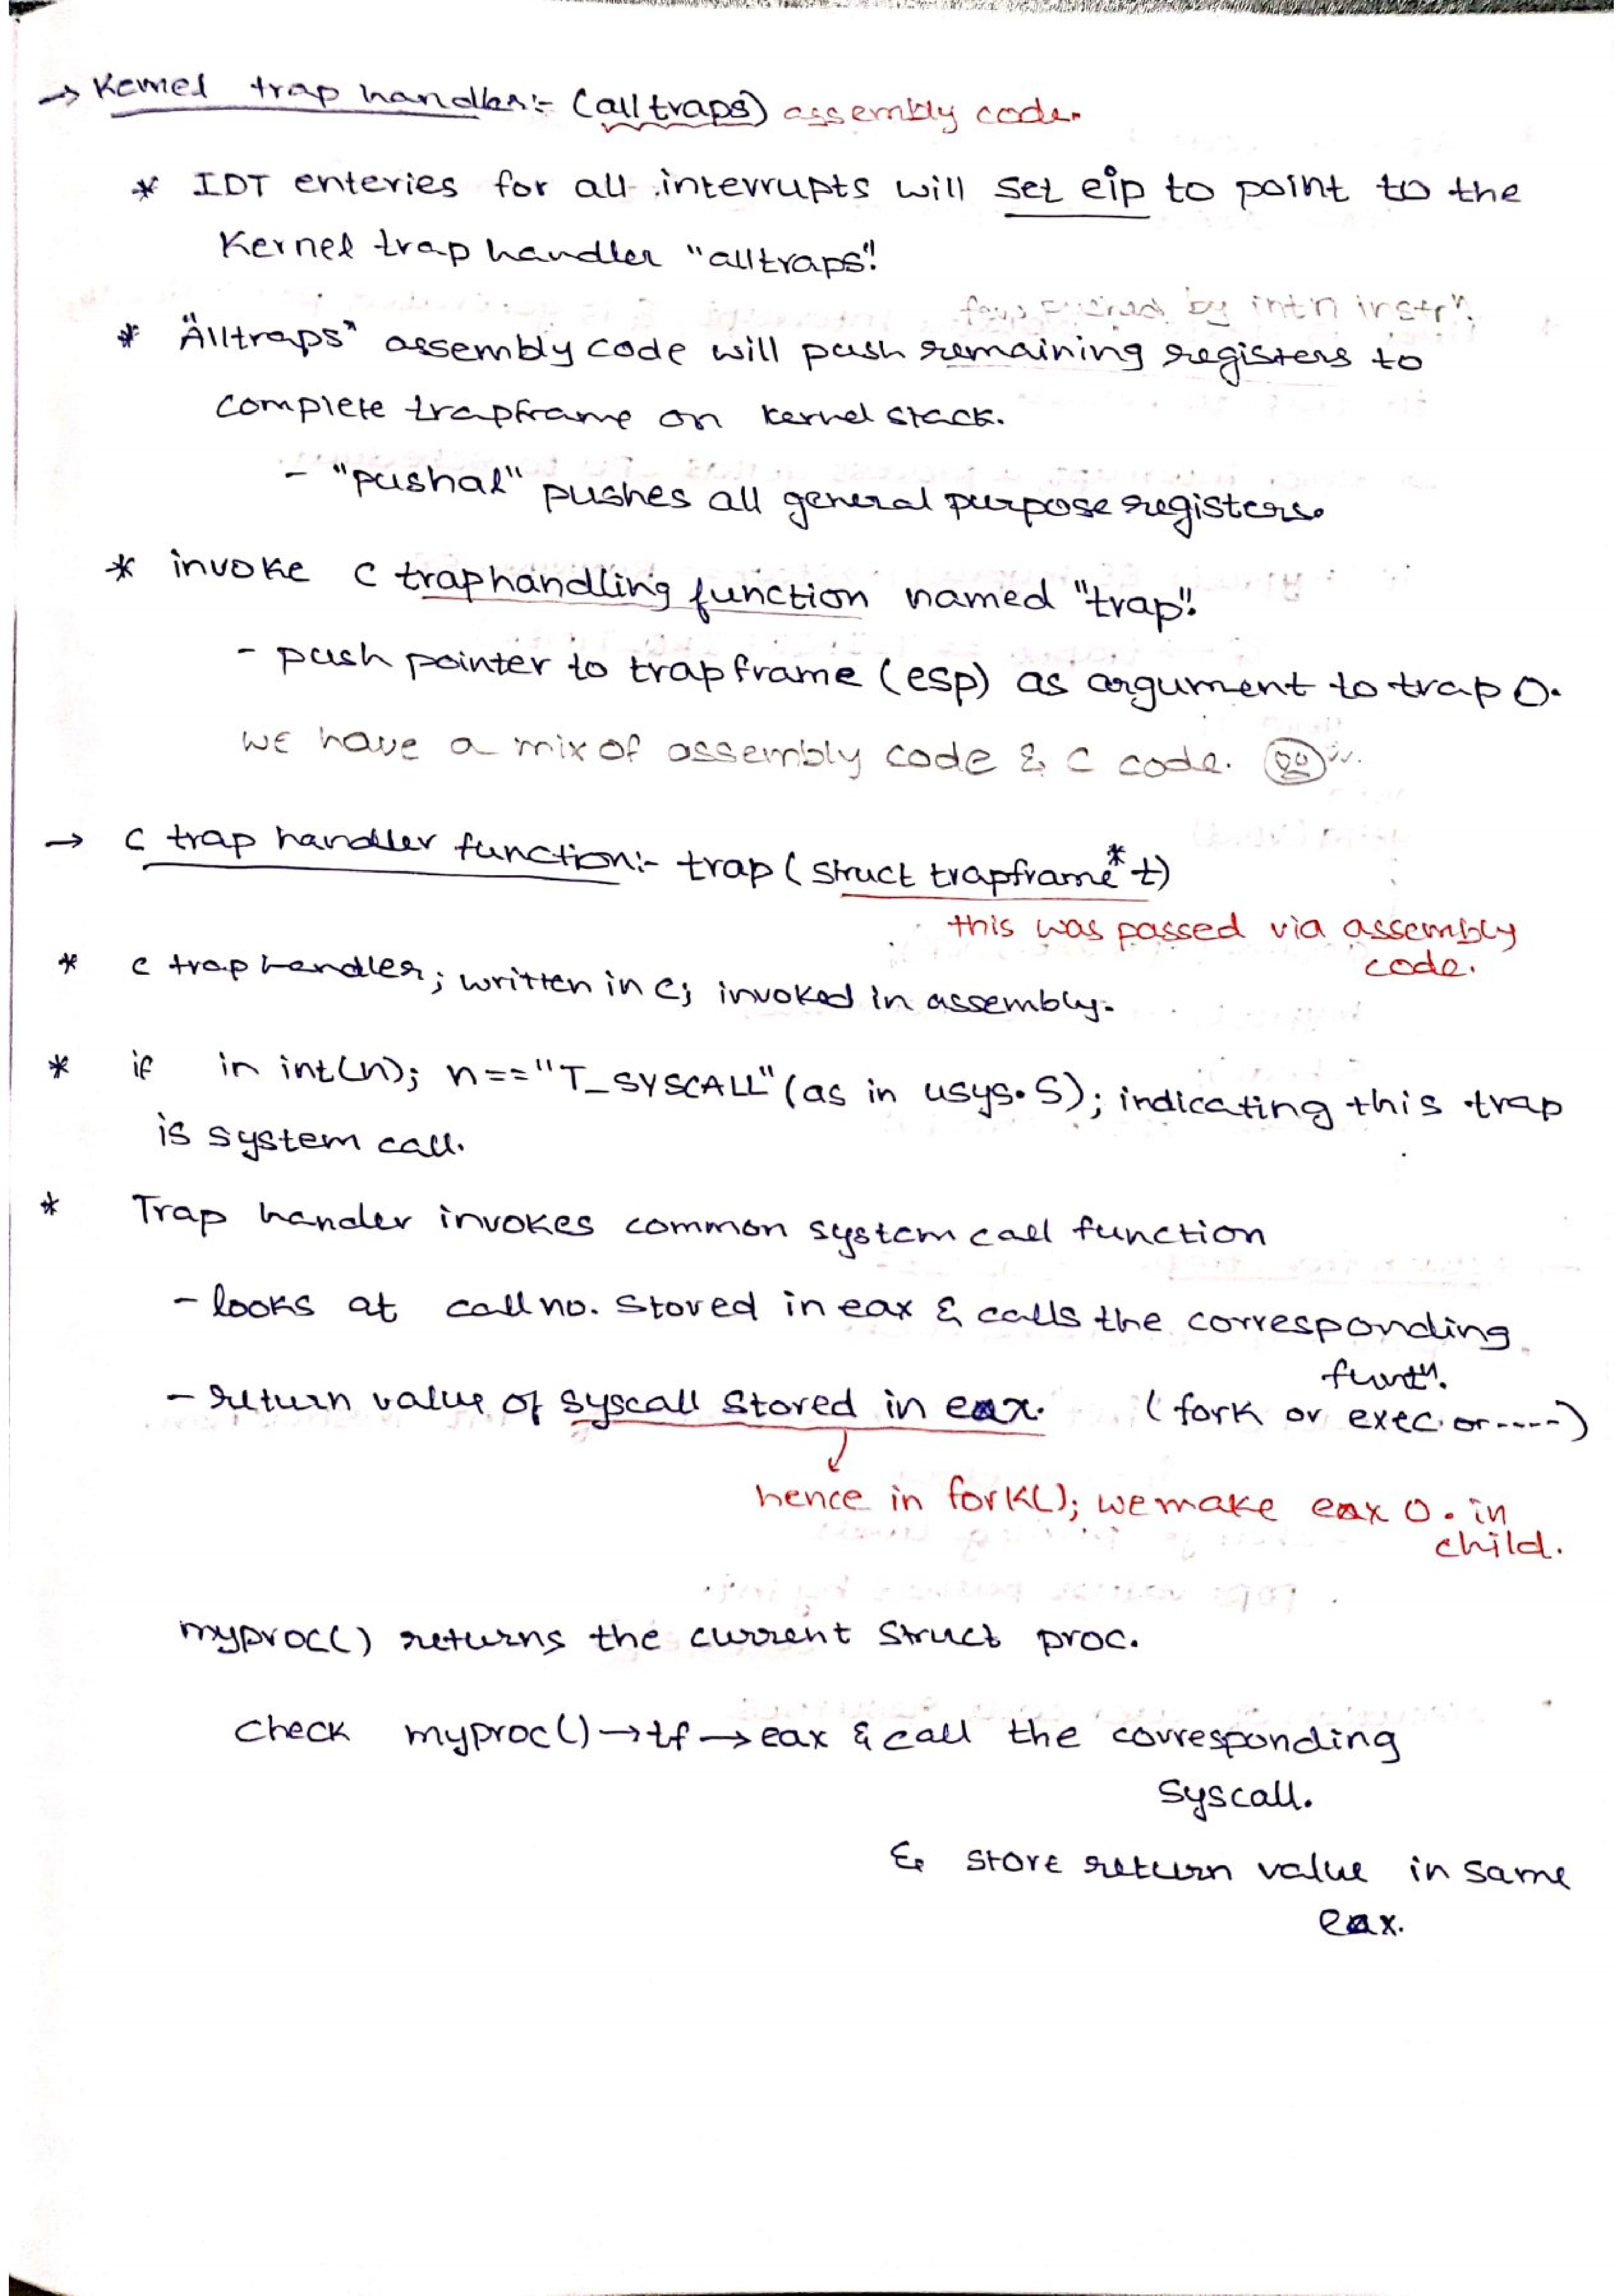 → Kernel trap handler:- (alltraps) assembly code.
* IDT enteries for all interrupts will set eip to point to the
Kernel trap handler "alltraps".
by int n instrⁿ.
* "Alltraps" assembly code will push remaining registers to
complete trapframe on kernel stack.
- "pushal" pushes all general purpose registers.
* invoke C traphandling function named "trap".
- push pointer to trapframe (esp) as argument to trap ().
we have a mix of assembly code & C code.
→ C trap handler function:- trap (struct trapframe* t)
this was passed via assembly
code.
* C trap handler; written in C; invoked in assembly.
* if in int(n); n=="T_SYSCALL" (as in usys.S); indicating this trap
is system call.
* Trap hander invokes common system call function
- looks at call no. stored in eax & calls the corresponding
functⁿ.
- return value of syscall stored in eax. (fork or exec or ----)
↓
hence in fork(); we make eax 0. in
child.
myproc() returns the current struct proc.
check myproc()→tf→eax & call the corresponding
syscall.
& store return value in same
eax.